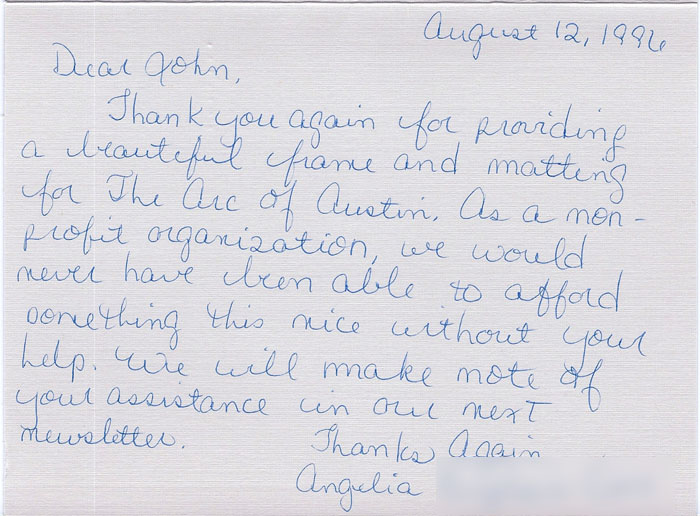 August 12, 1996
Dear John,
Thank you again for providing
a beautiful frame and matting
for The Arc of Austin. As a non-
profit organization, we would
never have been able to afford
something this nice without your
help. We will make note of
your assistance in our next
newsletter.
Thanks Again
Angelia